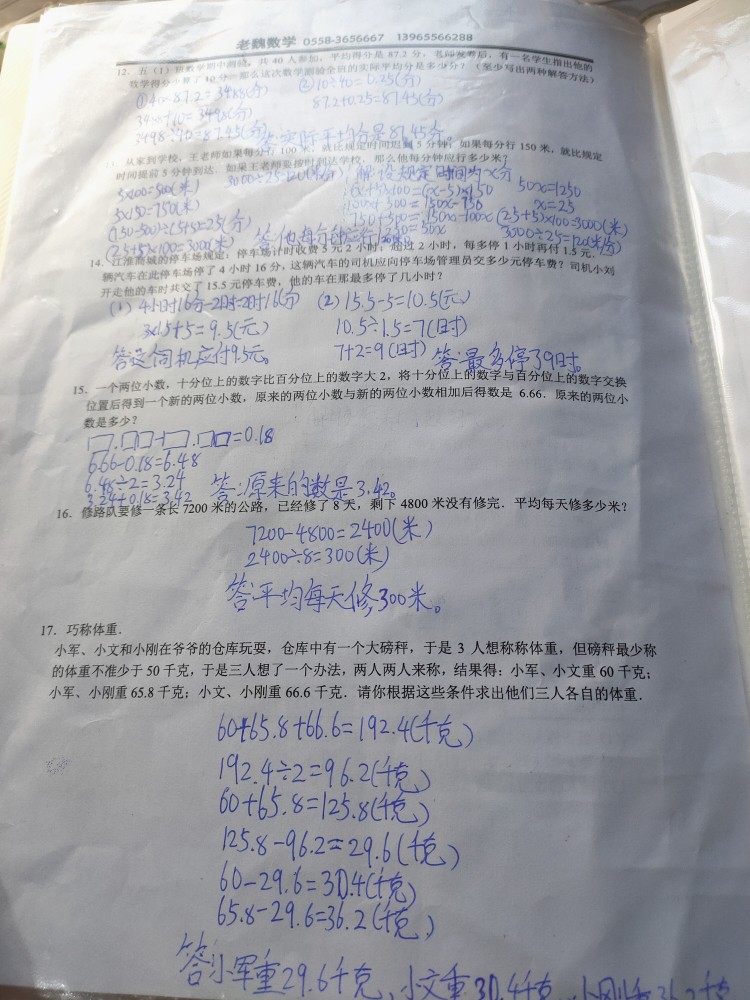 老魏数学 0558-3656667 13965566288
12. 五（1）班数学期中测验，共 40 人参加，平均得分是 87.2 分，老师发卷后，有一名学生指出他的
那么这次数学测验全班的实际平均分是多少分？（至少写出两种解答方法）
①40×87.2=3488(分) ②10÷40=0.25(分)
3488+10=3498(分) 87.2+0.25=87.45(分)
3498÷40=87.45(分) 答:实际平均分是87.45分。
13. 从家到学校，王老师如果每分行 100 米，就比规定时间迟到 5 分钟；如果每分行 150 米，就比规定
时间提前 5 分钟到达．如果王老师要按时到达学校，那么他每分钟应行多少米？
5×100=500(米) 3000÷25=120(米/分) 解:设规定时间为x分 50x=1250
5×150=750(米) (x+5)×100=(x-5)×150 x=25
100x+500=150x-750
(750+500)÷ =25(分) 750+500=150x-100x (25+5)×100=3000(米)
(25+5)×100=3000(米) 1250=50x 3000÷25=120(米/分)
14. 江淮商城的停车场规定：停车场计时收费 5 元 2 小时；超过 2 小时，每多停 1 小时再付 1.5 元．
辆汽车在此停车场停了 4 小时 16 分，这辆汽车的司机应向停车场管理员交多少元停车费？司机小刘
开走他的车时共交了 15.5 元停车费，他的车在那最多停了几小时？
(1) 4小时16分-2时=2时16分 (2) 15.5-5=10.5(元)
3×1.5+5=9.5(元) 10.5÷1.5=7(时)
答:这司机应付9.5元。 7+2=9(时) 答:最多停了9时。
15. 一个两位小数，十分位上的数字比百分位上的数字大 2，将十分位上的数字与百分位上的数字交换
位置后得到一个新的两位小数，原来的两位小数与新的两位小数相加后得数是 6.66．原来的两位小
数是多少？
□.□□-□.□□=0.18
6.66-0.18=6.48
6.48÷2=3.24
3.24+0.18=3.42 答:原来的数是3.42。
16. 修路队要修一条长 7200 米的公路，已经修了 8 天，剩下 4800 米没有修完．平均每天修多少米？
7200-4800=2400(米)
2400÷8=300(米)
答:平均每天修300米。
17. 巧称体重．
小军、小文和小刚在爷爷的仓库玩耍，仓库中有一个大磅秤，于是 3 人想称称体重，但磅秤最少称
的体重不准少于 50 千克，于是三人想了一个办法，两人两人来称，结果得：小军、小文重 60 千克；
小军、小刚重 65.8 千克；小文、小刚重 66.6 千克．请你根据这些条件求出他们三人各自的体重．
60+65.8+66.6=192.4(千克)
192.4÷2=96.2(千克)
60+65.8=125.8(千克)
125.8-96.2=29.6(千克)
60-29.6=30.4(千克)
65.8-29.6=36.2(千克)
答:小军重29.6千克,小文重30.4千克,小刚重36.2千克